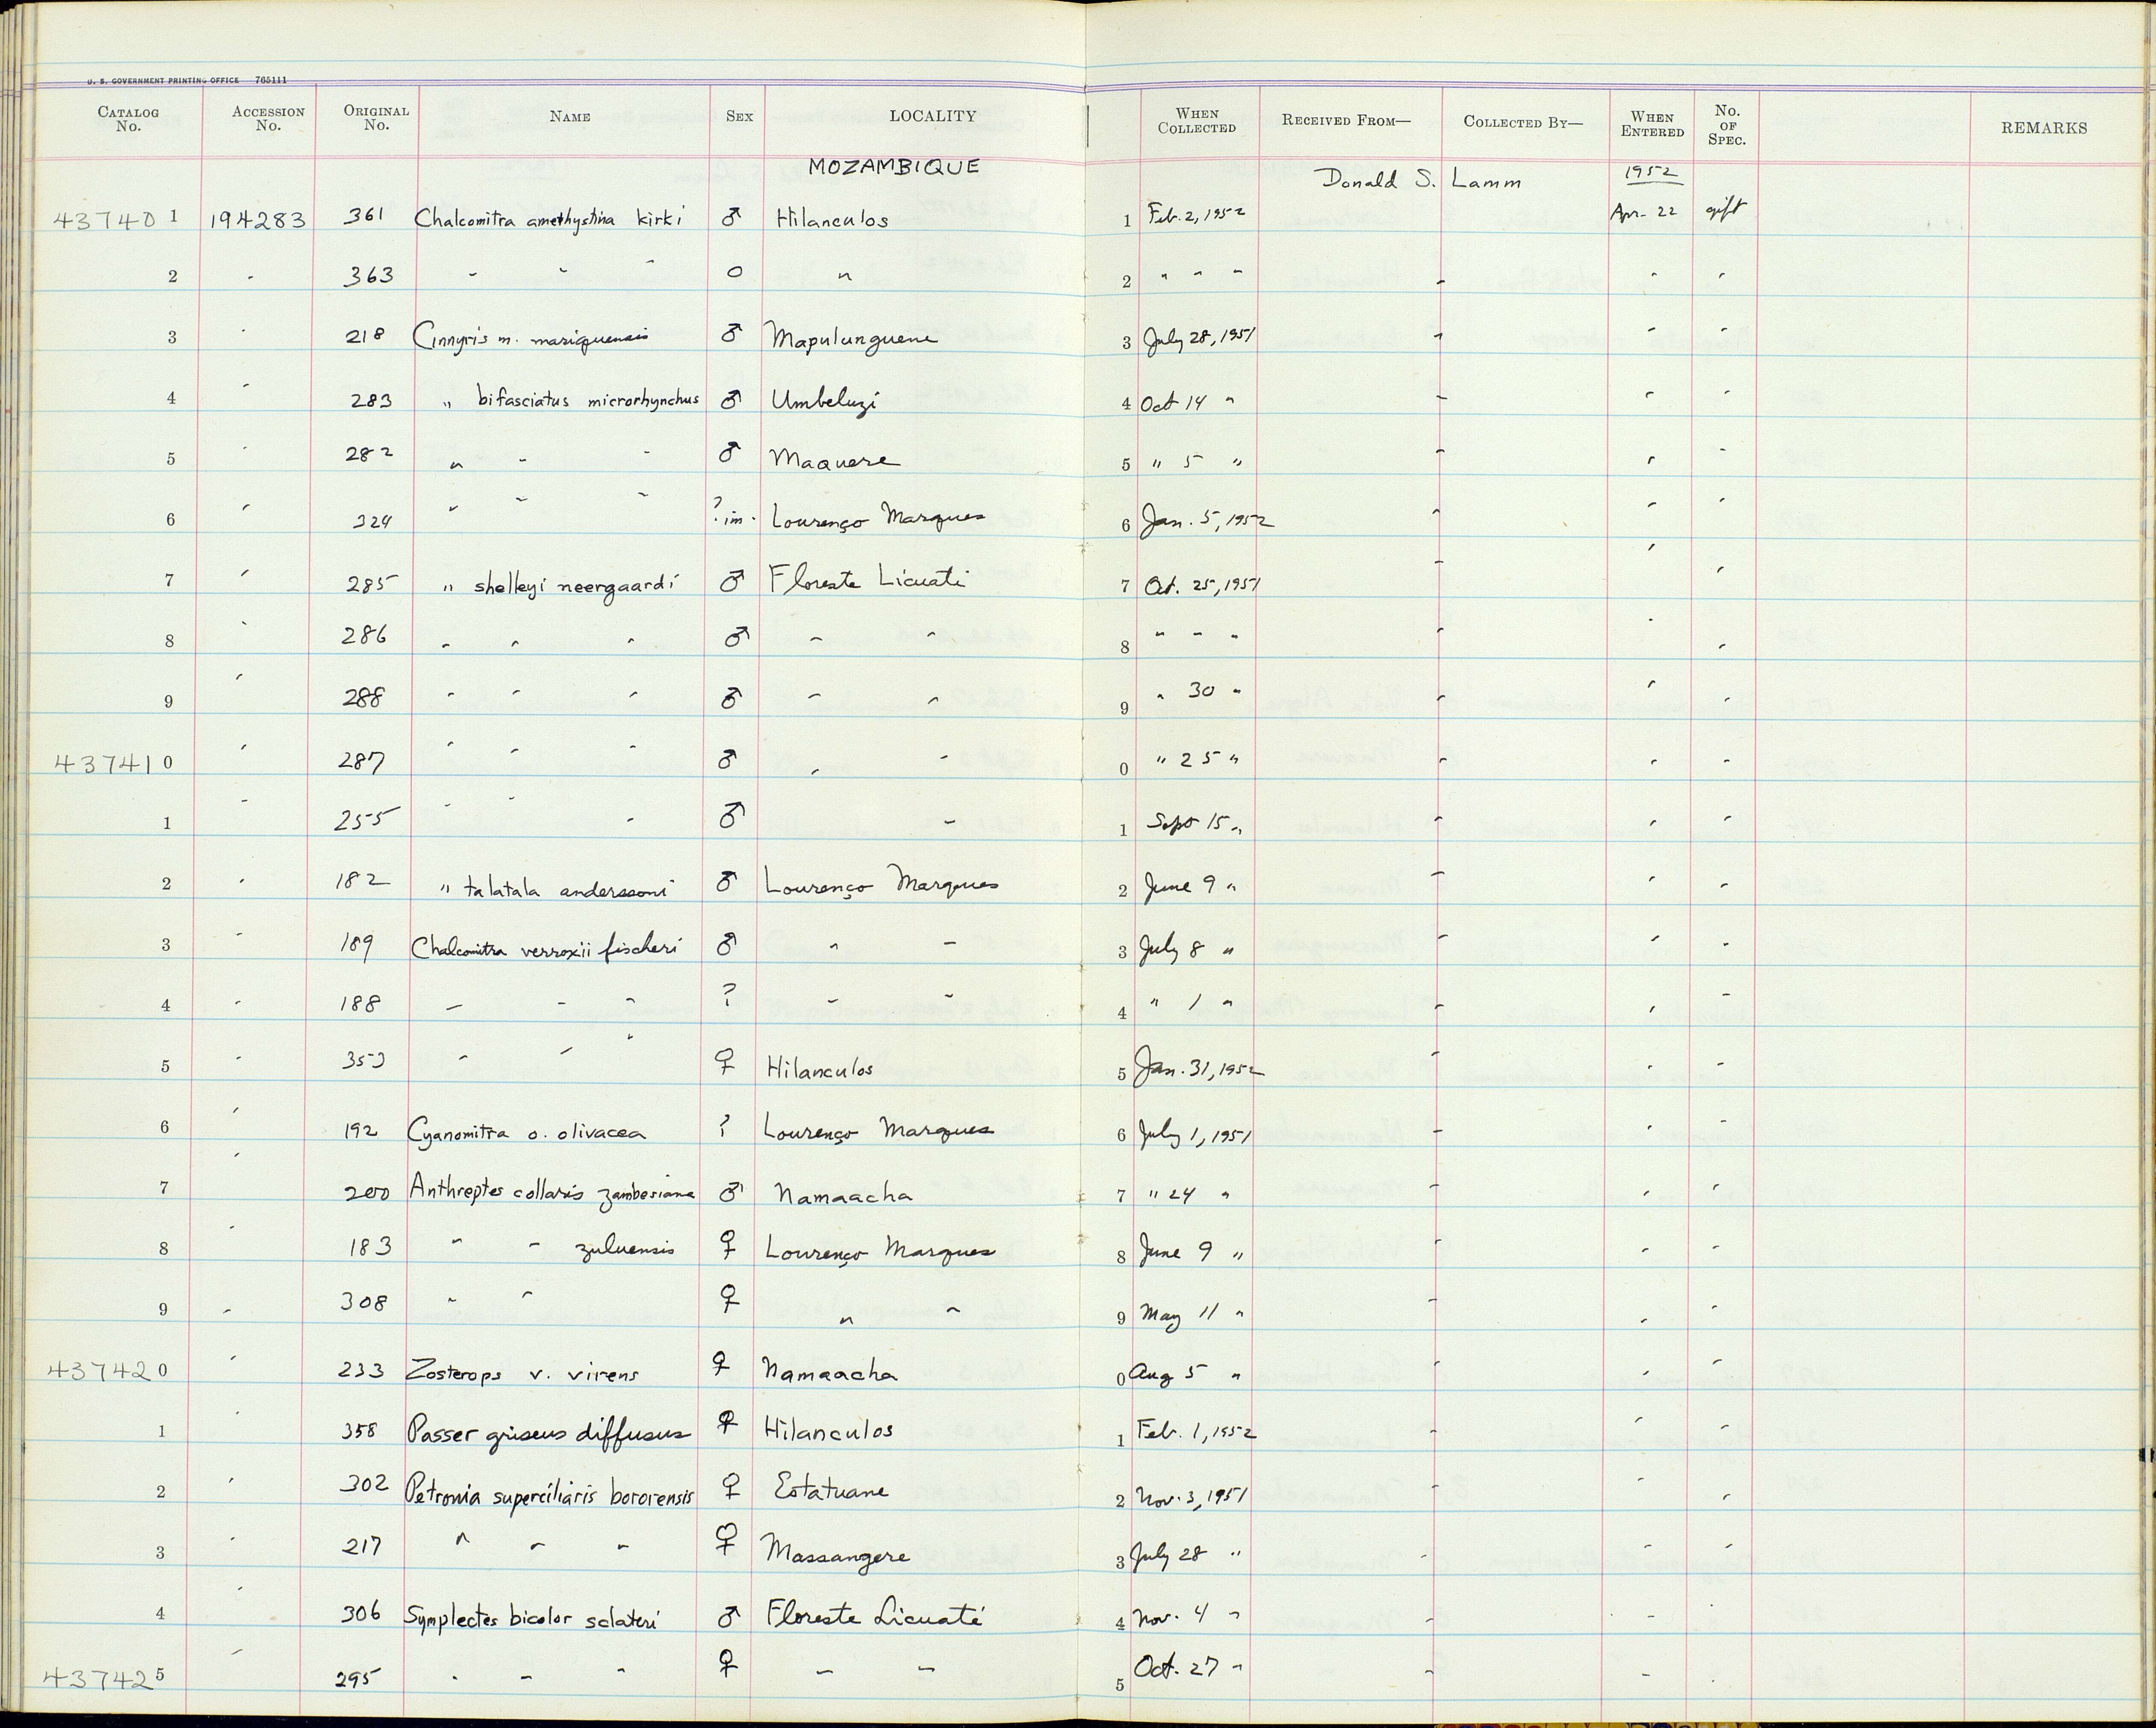 U. S. GOVERNMENT PRINTING OFFICE 765111
CATALOG No. ACCESSION No. ORIGINAL No. NAME SEX LOCALITY WHEN COLLECTED RECEIVED FROM— COLLECTED BY— WHEN ENTERED No. OF SPEC. REMARKS
MOZAMBIQUE Donald S. Lamm 1952
437401 194283 361 Chalcomitra amethystina kirki ♂ Hilanculos 1 Feb. 2, 1952 Apr. 22 gift
2 " 363 " " " O " 2 " " " " " "
3 " 218 Cinnyris m. mariquensis ♂ Mapulunguene 3 July 28, 1951 " " "
4 " 283 " bifasciatus microrhynchus ♂ Umbeluzi 4 Oct 14 " " " "
5 " 282 " " " ♂ Maquere 5 " 5 " " " "
6 " 324 " " " ? im. Lourenço Marques 6 Jan. 5, 1952 " " "
7 " 285 " shelleyi neergaardi ♂ Floreste Licuati 7 Oct. 25, 1951 " " "
8 " 286 " " " ♂ " " 8 " " " " " "
9 " 288 " " " ♂ " " 9 " 30 " " " "
437410 " 287 " " " ♂ " " 0 " 25 " " " "
1 " 255 " " " ♂ " 1 Sept 15 " " " "
2 " 182 " talatala anderssoni ♂ Lourenço Marques 2 June 9 " " " "
3 " 189 Chalcomitra verroxii fischeri ♂ " " 3 July 8 " " " "
4 " 188 " " " ? " " 4 " 1 " " " "
5 " 353 " " " ♀ Hilanculos 5 Jan. 31, 1952 " " "
6 " 192 Cyanomitra o. olivacea ? Lourenço Marques 6 July 1, 1951 " " "
7 " 200 Anthreptes collaris zambesiana ♂ Namaacha 7 " 24 " " " "
8 " 183 " " zuluensis ♀ Lourenço Marques 8 June 9 " " " "
9 " 308 " " ♀ " " 9 May 11 " " " "
437420 " 233 Zosterops v. virens ♀ Namaacha 0 Aug 5 " " " "
1 " 358 Passer griseus diffusus ♀ Hilanculos 1 Feb. 1, 1952 " " "
2 " 302 Petronia superciliaris bororensis ♀ Estatuane 2 Nov. 3, 1951 " " "
3 " 217 " " " ♀ Massangere 3 July 28 " " " "
4 " 306 Symplectes bicolor sclateri ♂ Floreste Licuati 4 Nov. 4 " " " "
437425 " 295 " " " ♀ " " 5 Oct. 27 " " " "